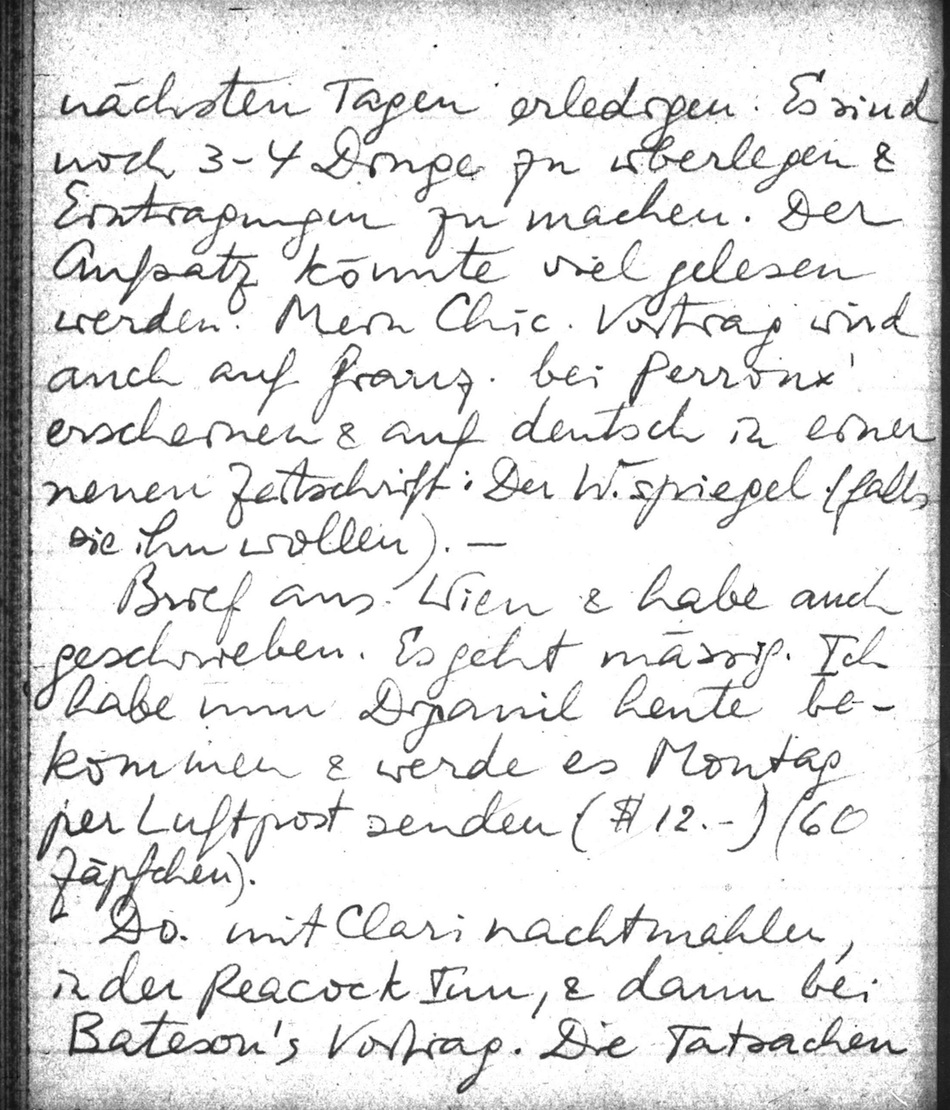 nächsten Tagen erledigen. Es sind
noch 3-4 Dinge zu überlegen &
Eintragungen zu machen. Der
Aufsatz könnte viel gelesen
werden. Mein Chic. Vortrag wird
auch auf franz. bei Perroux'
erscheinen & auf deutsch in einer
neuen Zeitschrift: Der W.spiegel (falls
sie ihn wollen). —
Brief aus Wien & habe auch
geschrieben. Es geht mässig. Ich
habe nun Dipanil heute be-
kommen & werde es Montag
per Luftpost senden ($ 12.-) (60
Zäpfchen).
Do. mit Clari nachtmahlen,
in der Peacock Inn, & dann bei
Bateson's Vortrag. Die Tatsachen